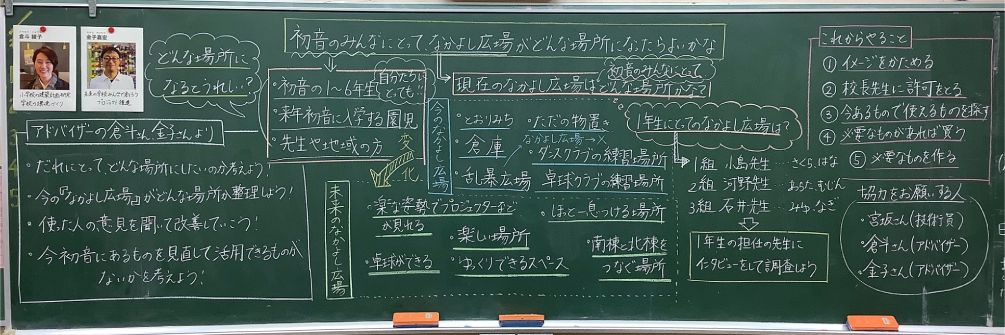 倉斗 綾子
金子嘉宏
どんな場所に
なるとうれしい…?
アドバイザーの倉斗さん、金子さんより
・だれにとってどんな場所にしたいのか考えよう!
・今の『なかよし広場』がどんな場所か整理しよう!
・使った人の意見を聞いて改善していこう!
・今初音にあるものを見直して活用できるものが
ないかを考えよう!
初音のみんなにとって、なかよし広場がどんな場所になったらよいかな
・初音の1〜6年生
自分たちに
とっても!!
・来年初音に入学する園児
・先生や地域の方
変
化
初音のみんなにとって
現在のなかよし広場はどんな場所かな?
今のなかよし広場
・とおりみち
・ただの物置き
・倉庫
なかよし広場→
・ダンスクラブの練習場所
・乱暴広場
卓球クラブの練習場所
未来のなかよし広場
・楽な姿勢でプロジェクターなど
が見れる
・ほっと一息つける場所
・楽しい場所
・卓球ができる
・ゆっくりできるスペース
・南棟と北棟を
つなぐ場所
1年生にとってのなかよし広場は?
1組 小島先生…さくら、はな
2組 河野先生…
3組 石井先生…みゆ、なぎ
1年生の担任の先生に
インタビューをして調査しよう
これからやること
① イメージをかためる
② 校長先生に許可をとる
③ 今あるもので使えるものを探す
④ 必要なものがあれば買う
⑤ 必要なものを作る
協力をお願いする人
・宮坂さん(技術員)
・倉斗さん(アドバイザー)
・金子さん(アドバイザー)